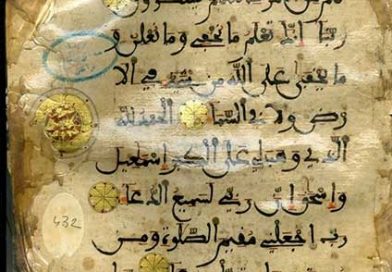 ربنا انك تعلم ما نخفي وما نعلن و
ما يخفى على الله من شيء في الا
رض ولا في السماء الحمد لله
الذي وهب لي على الكبر اسمعيل
واسحق ان ربي لسميع الدعاء
432
رب اجعلني مقيم الصلوة ومن